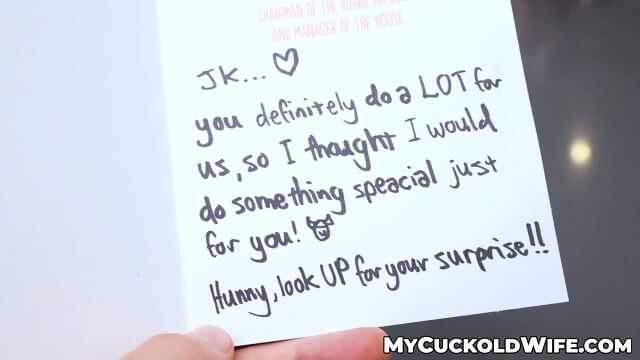 CHAIRMAN OF THE BOARD, PRESIDENT
AND MANAGER OF THE HOUSE.
JK... ♡
you definitely do a LOT for
us, so I thought I would
do something speacial just
for you!
Hunny, look UP for your surprise!!
MYCUCKOLDWIFE.COM